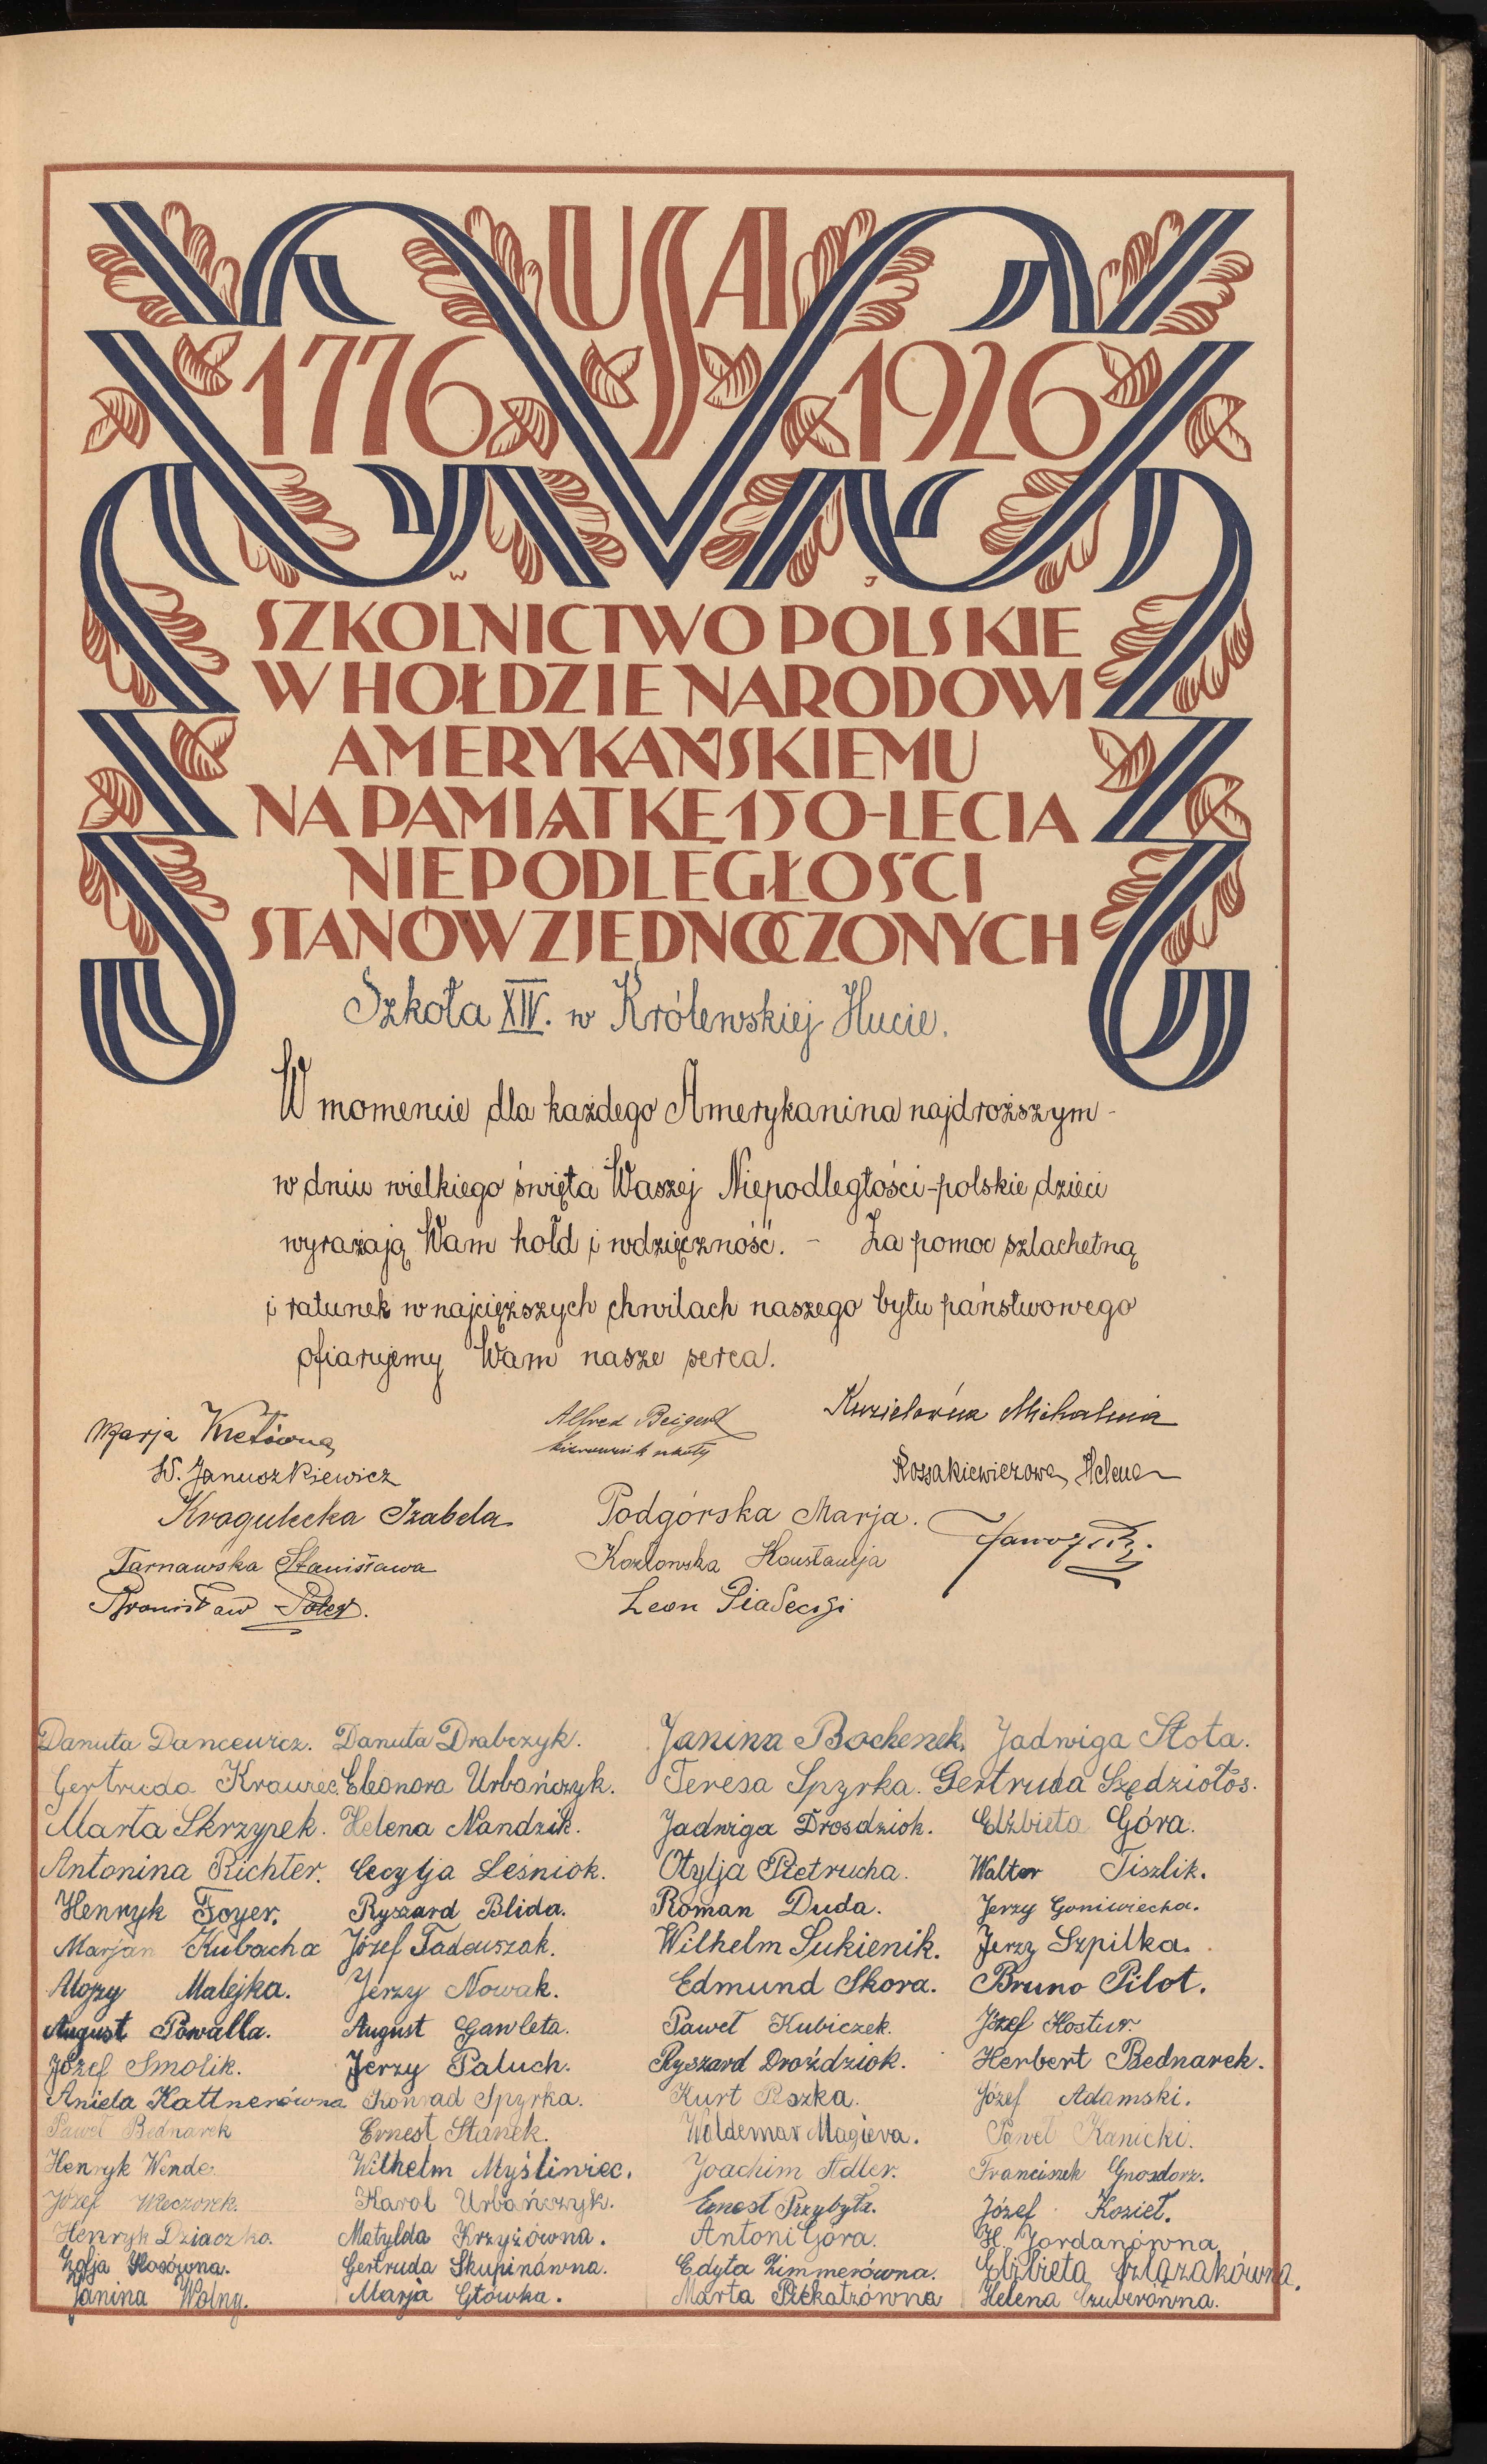 USA
1776 1926
W J
SZKOLNICTWO POLSKIE
W HOŁDZIE NARODOWI
AMERYKAŃSKIEMU
NA PAMIĄTKĘ 150-LECIA
NIEPODLEGŁOŚCI
STANÓW ZJEDNOCZONYCH
Szkoła XIV. w Królewskiej Hucie.
W momencie dla każdego Amerykanina najdroższym -
w dniu wielkiego święta Waszej Niepodległości - polskie dzieci
wyrażają Wam hołd i wdzięczność. - Za pomoc szlachetną
i ratunek w najcięższych chwilach naszego bytu państwowego
ofiarujemy Wam nasze serca.
Marja Kretówna Alfred Beigert Kuzielówna Michalina
kierownik szkoły
W. Januszkiewicz Rossakiewiczowa Helena
Kragulecka Izabela Podgórska Marja.
Tarnawska Stanisława Kozłowska Konstancja
Bronisław Leon Piasecki
Danuta Dancewicz. Danuta Drabczyk. Janina Bochenek. Jadwiga Słota.
Gertruda Krawiec. Eleonora Urbańczyk. Teresa Spyrka. Gertruda Szędziołos.
Marta Skrzypek. Helena Nandzik. Jadwiga Drosdziok. Elżbieta Góra.
Antonina Richter. Cecylja Leśniok. Otylja Pietrucha. Walter Tiszlik.
Henryk Foyer. Ryszard Blida. Roman Duda. Jerzy Goniwiecha.
Marjan Kubacha Józef Tadeuszak. Wilhelm Sukienik. Jerzy Szpilka.
Alojzy Malejka. Jerzy Nowak. Edmund Skora. Bruno Pilot.
August Powalla. August Gawleta. Paweł Kubiczek. Józef Kostur.
Józef Smolik. Jerzy Paluch. Ryszard Droździok. Herbert Bednarek.
Aniela Kattnerówna Konrad Spyrka. Kurt Reszka. Józef Adamski.
Paweł Bednarek Ernest Stanek. Woldemar Magiera. Paweł Kanicki.
Henryk Wende. Wilhelm Myśliwiec. Joachim Adler. Franciszek Gnosdorz.
Józef Wieczorek. Karol Urbańczyk. Ernest Przybyła. Józef Kozieł.
Henryk Dziaczko. Matylda Krzyżówna. Antoni Góra. H. Jordanówna
Zofja Kłosówna. Gertruda Skupinówna. Edyta Zimmerówna. Elżbieta Szlązakówna.
Janina Wolny. Marja Główka. Marta Piekatzówna Helena Czuberówna.